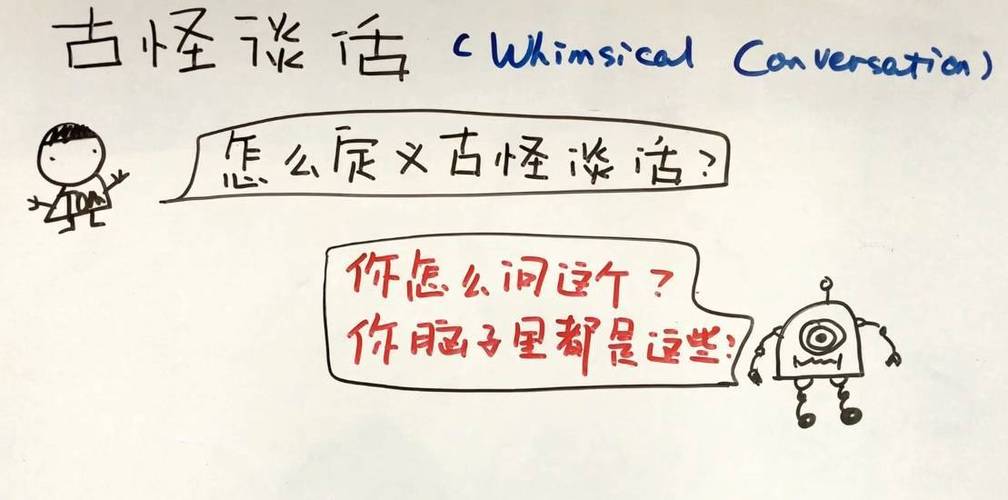 古怪谈话 (Whimsical Conversation)
怎么定义古怪谈话?
TOM
你怎么问这个?
你脑子里都是这些?